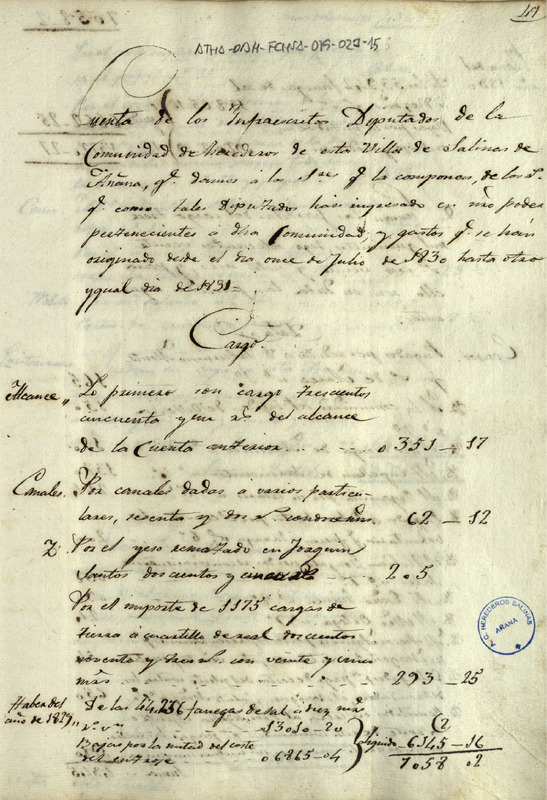 47
ATHA-DAH-FCHSA-019-023-15
Cuenta de los Infraescritos Diputados de la
Comunidad de herederos de esta Villa de Salinas de
Añana, q.e damos á los Sres q.e la componen, de los r.s
q.e como tales diputados han ingresado en nro poder
pertenecientes á dha Comunidad, y gastos q.e se han
originado desde el dia once de Julio de 1830 hasta otro
ygual dia de 1831=
Cargo.
Alcance,, Lo primero son cargo trescientos
cincuenta y un r.s del alcance
de la Cuenta anterior... 0351-17
Canales. Por canales dadas á varios particu-
lares, sesenta y dos r.s con doce mrs. 62-12
Por el yeso rematado en Joaquin
Santos doscientos y cinco 2.5
Por el importe de 1175 cargas de
tierra á cuartillo de real doscientos
noventa y tres r.s con veinte y cinco
mrs 293-25
Haber del
año de 1829,, De las fanegas de sal á diez mrs
13010-20
Bajas por la mitad del coste
del entroje 06865-04
Liquido 6145-16
7058.02
A.C. HEREDEROS SALINAS
AÑANA